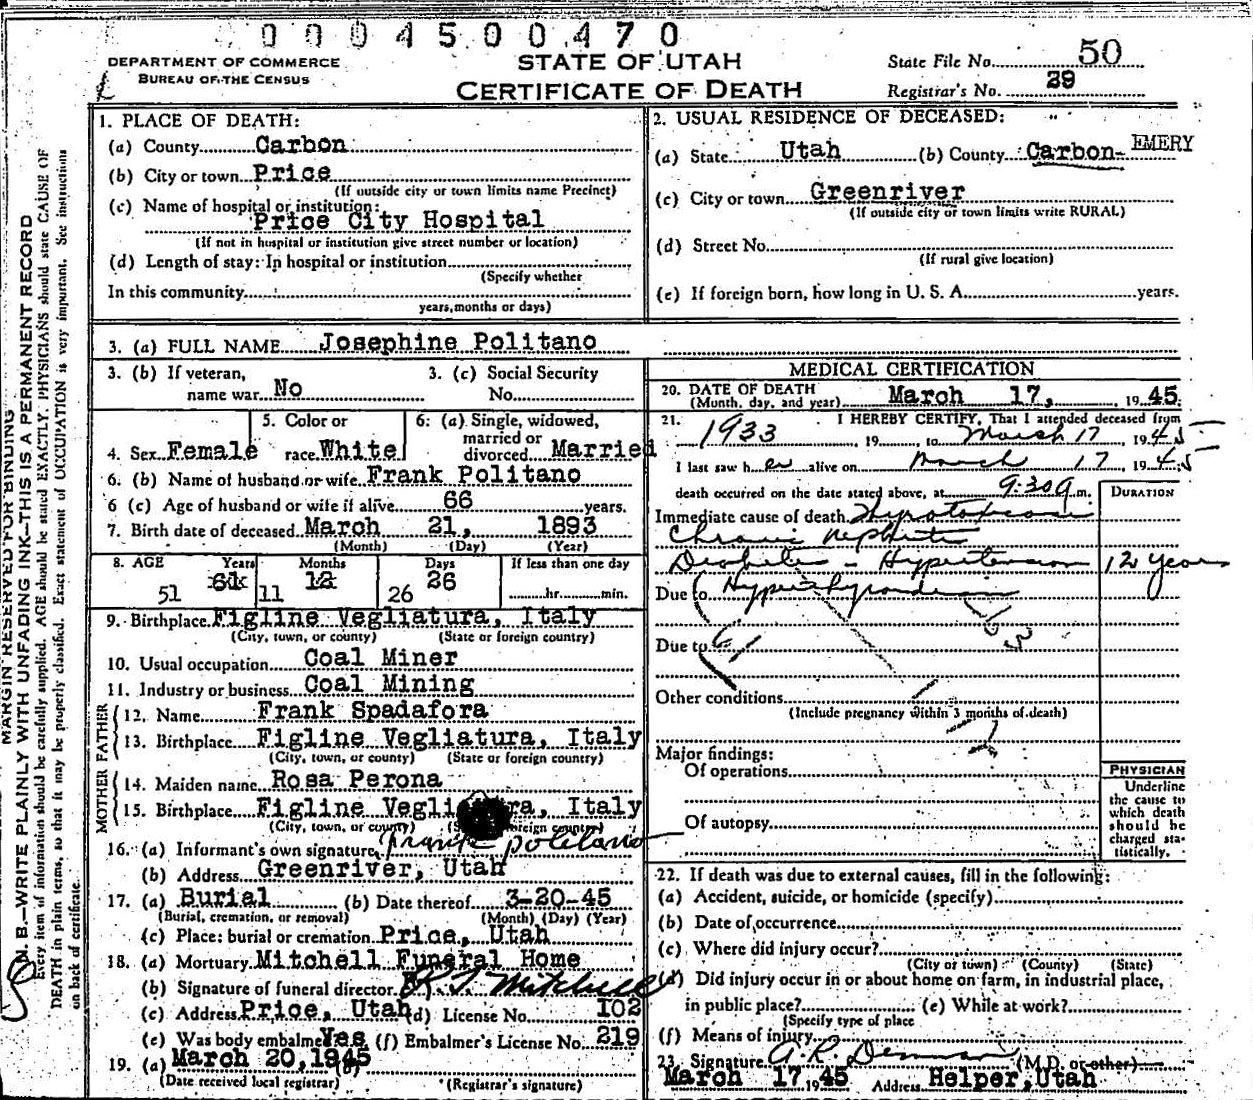 0004500470
DEPARTMENT OF COMMERCE
BUREAU OF THE CENSUS
STATE OF UTAH
CERTIFICATE OF DEATH
State File No. 50
Registrar's No. 39
MARGIN RESERVED FOR BINDING
N. B.—WRITE PLAINLY WITH UNFADING INK—THIS IS A PERMANENT RECORD
Every item of information should be carefully supplied. AGE should be stated EXACTLY. PHYSICIANS should state CAUSE OF
DEATH in plain terms, so that it may be properly classified. Exact statement of OCCUPATION is very important. See instructions
on back of certificate.
1. PLACE OF DEATH:
(a) County Carbon
(b) City or town Price
(If outside city or town limits name Precinct)
(c) Name of hospital or institution:
Price City Hospital
(If not in hospital or institution give street number or location)
(d) Length of stay: In hospital or institution
(Specify whether
In this community
years, months or days)
2. USUAL RESIDENCE OF DECEASED:
(a) State Utah (b) County Carbon- EMERY
(c) City or town Greenriver
(If outside city or town limits write RURAL)
(d) Street No.
(If rural give location)
(e) If foreign born, how long in U. S. A. years.
3. (a) FULL NAME Josephine Politano
3. (b) If veteran,
name war No
3. (c) Social Security
No.
4. Sex Female
5. Color or
race White
6. (a) Single, widowed,
married or
divorced Married
6. (b) Name of husband or wife Frank Politano
6 (c) Age of husband or wife if alive 66 years.
7. Birth date of deceased March 21, 1893
(Month) (Day) (Year)
8. AGE Years Months Days If less than one day
51 61 11 12 26 26 hr. min.
9. Birthplace Figline Vegliatura, Italy
(City, town, or county) (State or foreign country)
10. Usual occupation Coal Miner
11. Industry or business Coal Mining
FATHER
12. Name Frank Spadafora
13. Birthplace Figline Vegliatura, Italy
(City, town, or county) (State or foreign country)
MOTHER
14. Maiden name Rosa Perona
15. Birthplace Figline Vegliatura, Italy
(City, town, or county) (State or foreign country)
16. (a) Informant's own signature Frank Politano
(b) Address Greenriver, Utah
17. (a) Burial (b) Date thereof 3-20-45
(Burial, cremation, or removal) (Month) (Day) (Year)
(c) Place: burial or cremation Price, Utah
18. (a) Mortuary Mitchell Funeral Home
(b) Signature of funeral director Mitchell
(c) Address Price, Utah (d) License No. 102
(e) Was body embalmed Yes (f) Embalmer's License No. 219
19. (a) March 20, 1945 (b)
(Date received local registrar) (Registrar's signature)
MEDICAL CERTIFICATION
20. DATE OF DEATH
(Month, day, and year) March 17, 1945
21. I HEREBY CERTIFY, That I attended deceased from
1933, 19 to March 17 1945
I last saw her alive on March 17 1945
death occurred on the date stated above, at 9:30 a.m.
DURATION
Immediate cause of death Thyrotoxicosis
Chronic Nephritis
Diabetes - Hypertension 12 years
Due to Hyperthyroidism
Due to
Other conditions
(Include pregnancy within 3 months of death)
Major findings:
Of operations
Of autopsy
PHYSICIAN
Underline
the cause to
which death
should be
charged sta-
tistically.
22. If death was due to external causes, fill in the following:
(a) Accident, suicide, or homicide (specify)
(b) Date of occurrence
(c) Where did injury occur?
(City or town) (County) (State)
(d) Did injury occur in or about home on farm, in industrial place,
in public place? (e) While at work?
(Specify type of place
(f) Means of injury
23. Signature A. R. Demman (M.D. or other)
March 17 1945 Address Helper, Utah